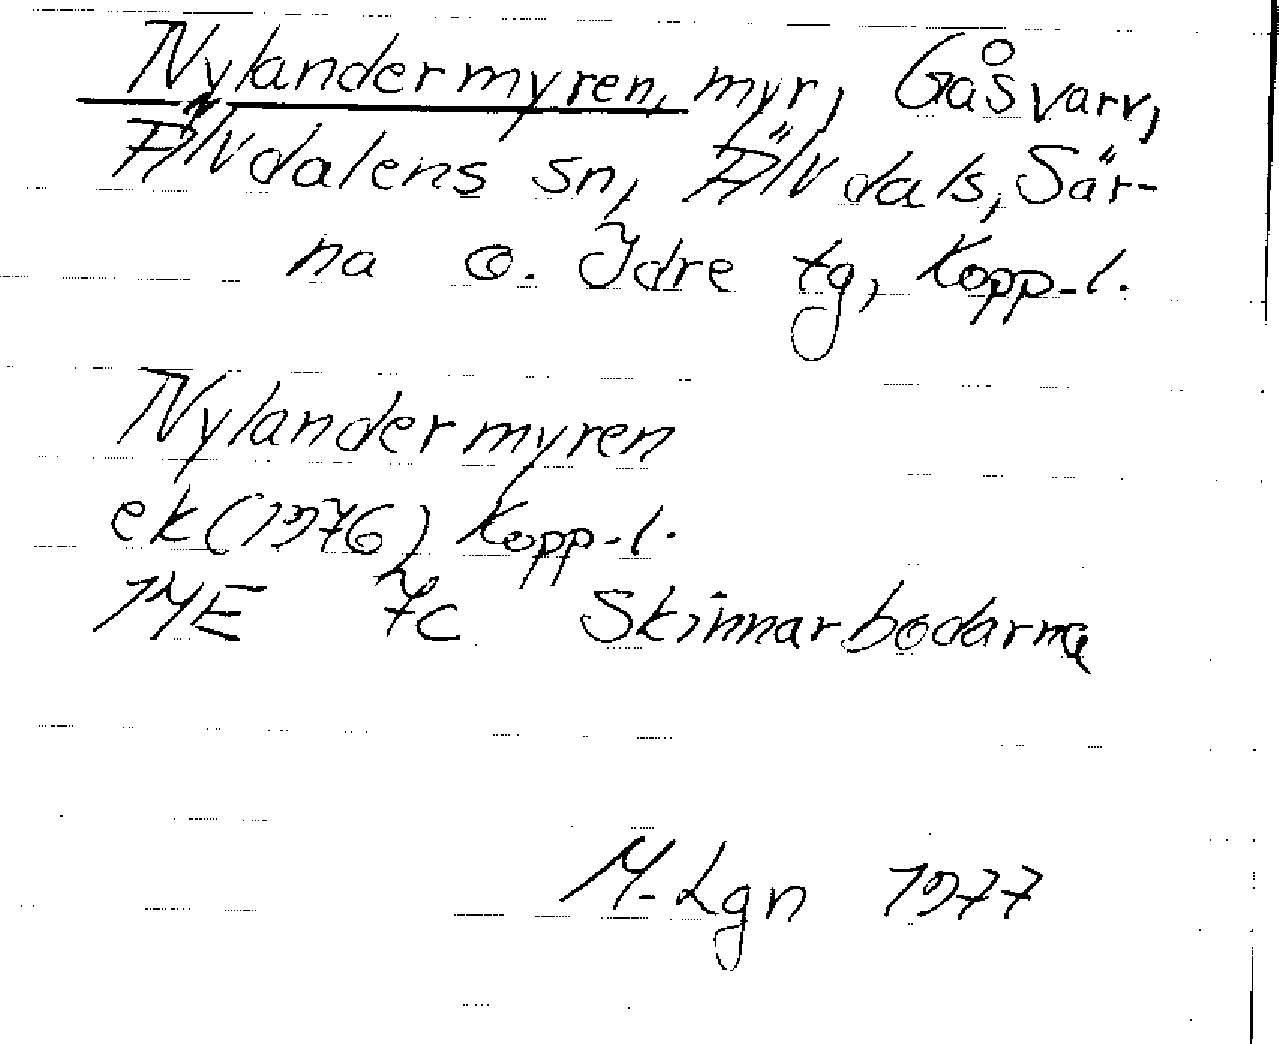 Nylandermyren, myr, Gåsvarv,
Älvdalens sn, Älvdals, Sär-
na o. Idre tg, Kopp.l.
Nylandermyren
ek (1976) Kopp.l.
14E 7c Skinnarbodarna
M-Lgn 1977